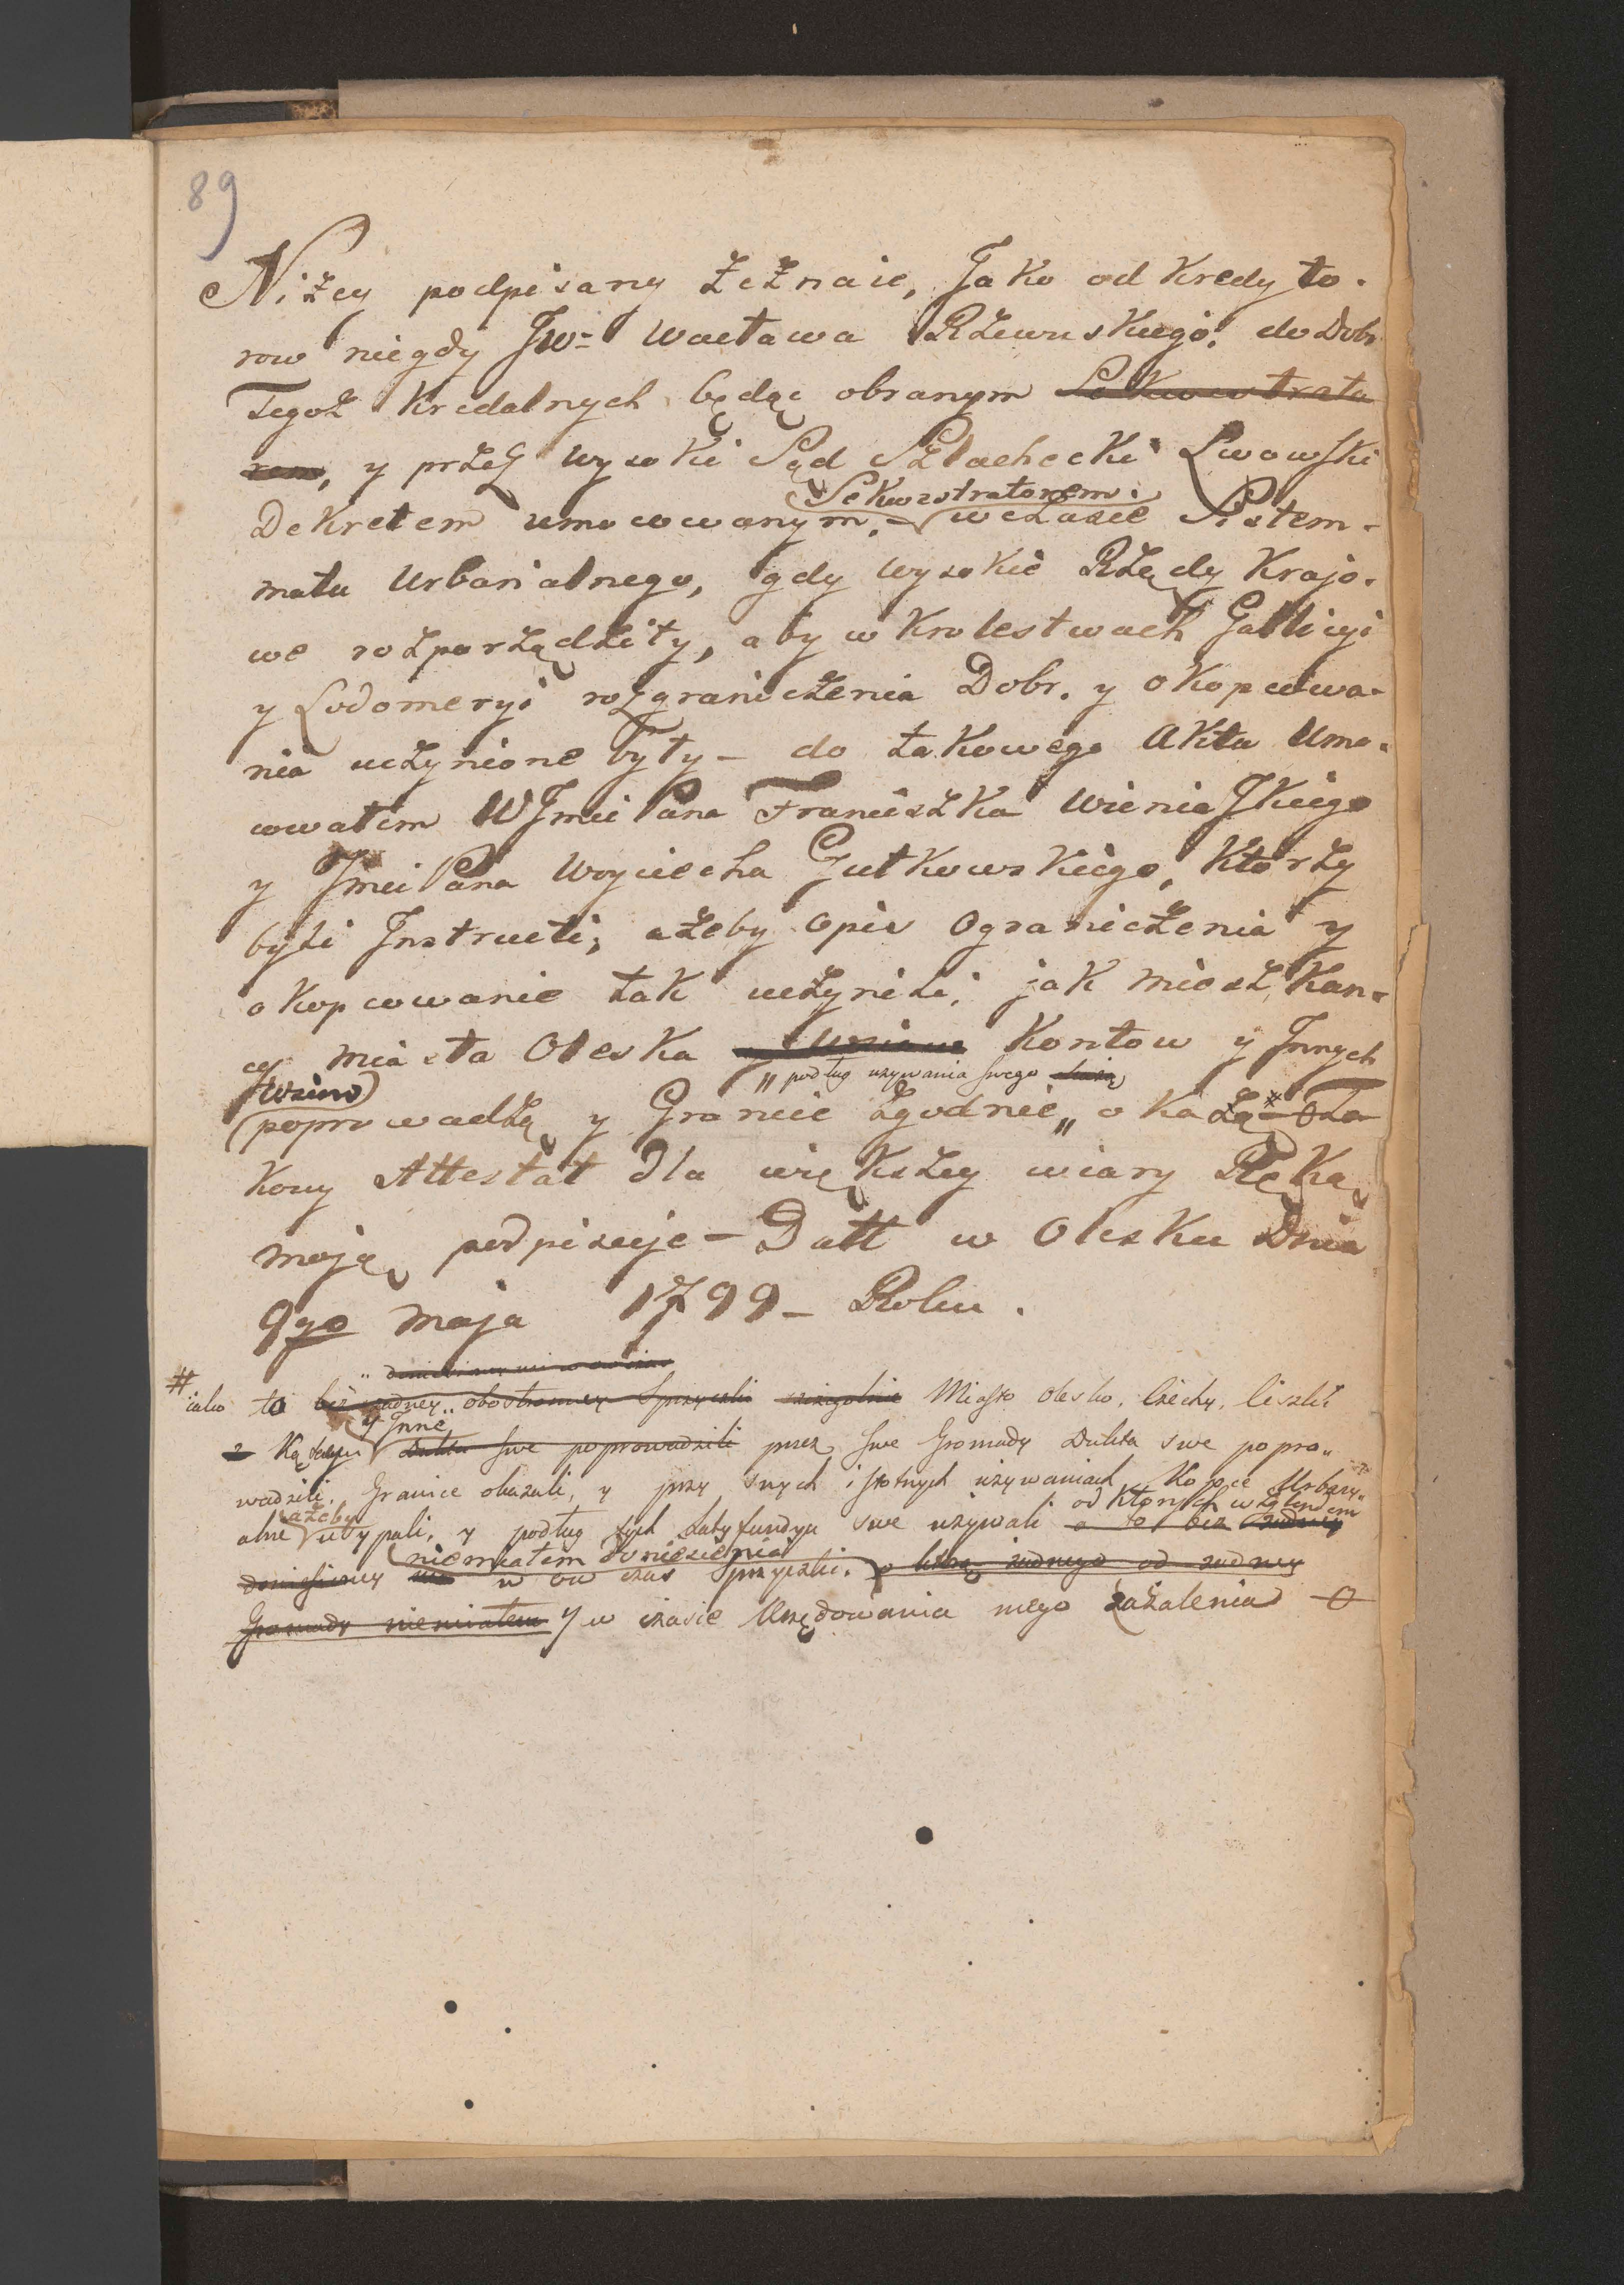 89
Niżey podpisany zeznaie, Jako od Kredyto.
row niegdy JW= Wacława Rzewuskiego. do Dobr
Tegoż Kredalnych będąc obranym Sekwestrato
rem, y przez Wysoki Sąd Szlachecki Lwowski
Sekwestratorem.
Dekretem umocowanym. – w czasie Sistem-
matu Urbarialnego, gdy Wysokie Rządy Krajo.
we rozporządziły, aby w Krolestwach Gallicyi
y Lodomeryi rozgraniczenia Dobr. y okopcowa-
nia uczynione były – do takowego Aktu Umo.
cowałem WJmci Pana Franciszka Winiaskiego
y Jmci Pana Woyciecha Gutkowskiego, ktorzy
byli Instructi, ażeby opis Ograniczenia y
okopcowanie tak uczynili, jak mieszkan-
cy miasta Oleska Kontow y Innych
wsiow
" podług uzywania swego
poprowadzą y Granice zgodnie " okażą # – O Ta
kowy Attestat dla większey wiary Ręką
moją podpisuje – Datt w Olesku Dnia
9go Maja 1799 – Roku.
#
iako to bez żadney obostronney Sprzeczki szczegolnie Miasto Olesko, Czechy, Ciszki
y Inne
Kąty Dukta swe poprowadzili przez swe Gromady Dukta swe popro"
wadzili, Granice okazali, y przy snych istotnych używaniach Kopce Urbary"
ażeby
od ktorych względem
alne usypali, y podług tych Latyfundya swe używali a to bez żadney
niemiałem doniesienia
w ow czas Sprzyczki. o żadnego od żadney
Gromady niemiałem y w czasie Urzędowania mego zażalenia – O